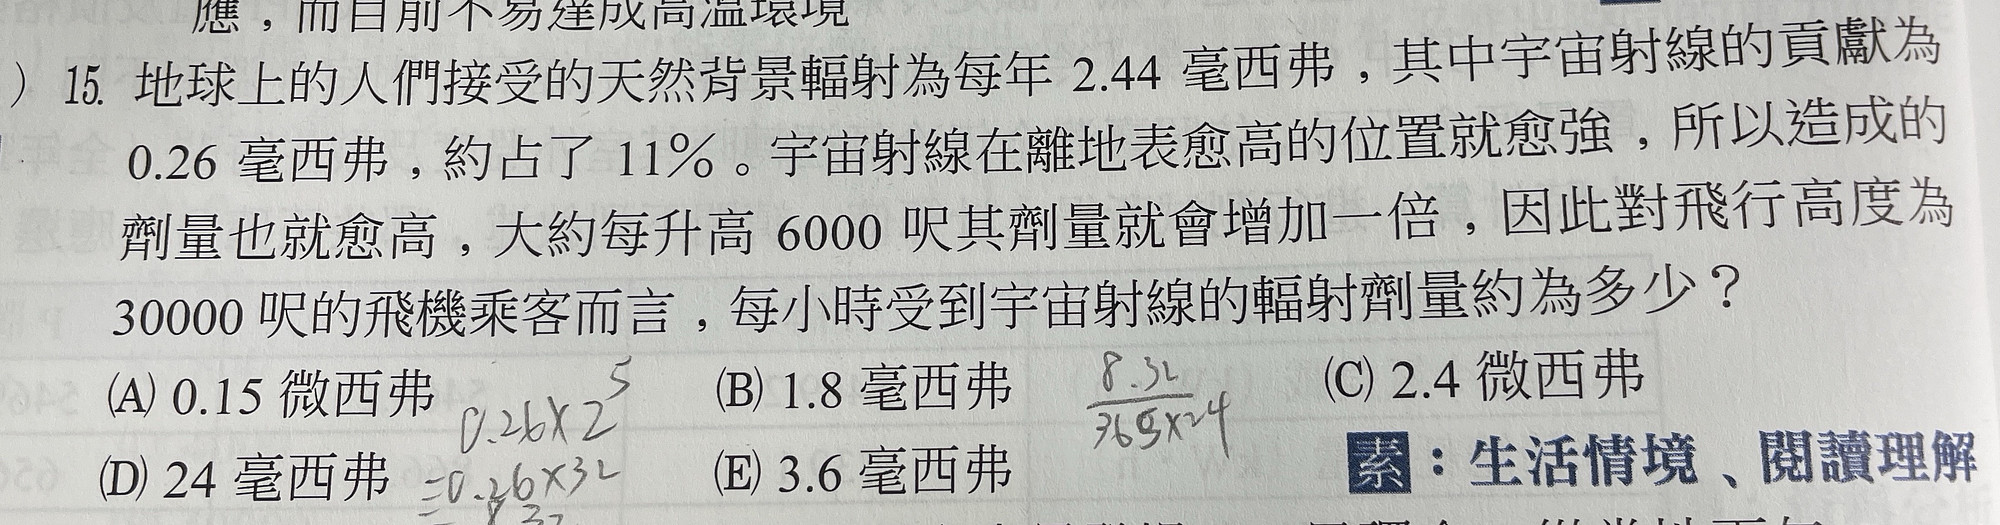 應，而目前不易達成高溫環境
) 15. 地球上的人們接受的天然背景輻射為每年 2.44 毫西弗，其中宇宙射線的貢獻為
0.26 毫西弗，約占了 11%。宇宙射線在離地表愈高的位置就愈強，所以造成的
劑量也就愈高，大約每升高 6000 呎其劑量就會增加一倍，因此對飛行高度為
30000 呎的飛機乘客而言，每小時受到宇宙射線的輻射劑量約為多少？
(A) 0.15 微西弗 (B) 1.8 毫西弗 (C) 2.4 微西弗
0.26×2⁵
8.32
365×24
(D) 24 毫西弗 (E) 3.6 毫西弗
=0.26×32
8.32
素：生活情境、閱讀理解